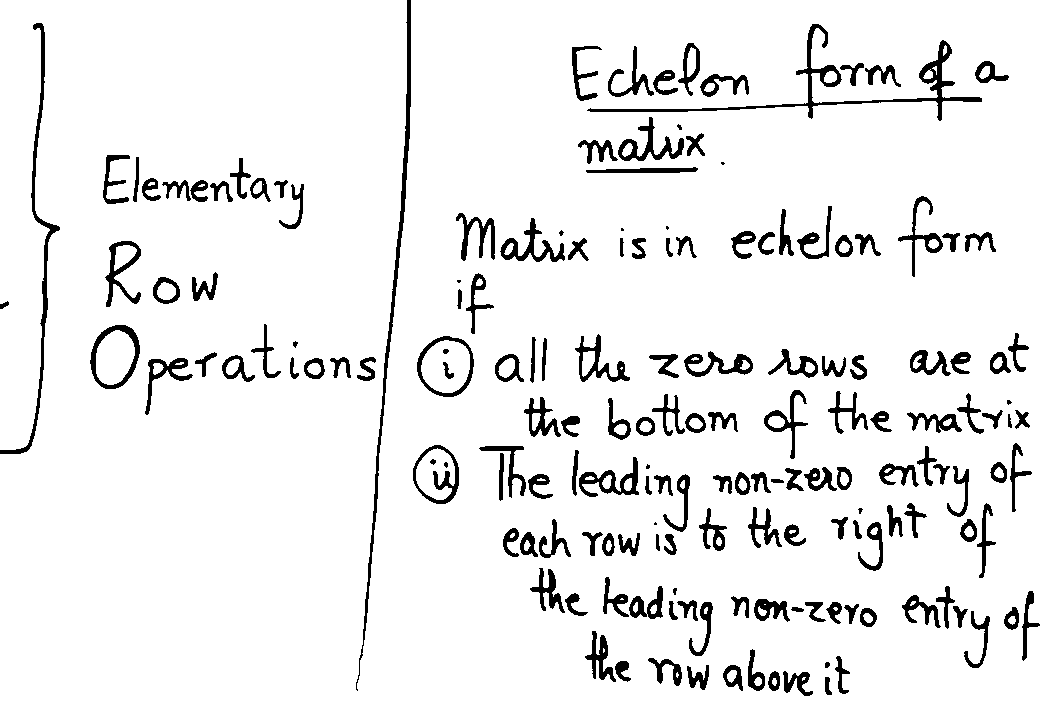 Elementary
Row
Operations
Echelon form of a
matrix.
Matrix is in echelon form
if
(i) all the zero rows are at
the bottom of the matrix
(ii) The leading non-zero entry of
each row is to the right of
the leading non-zero entry of
the row above it